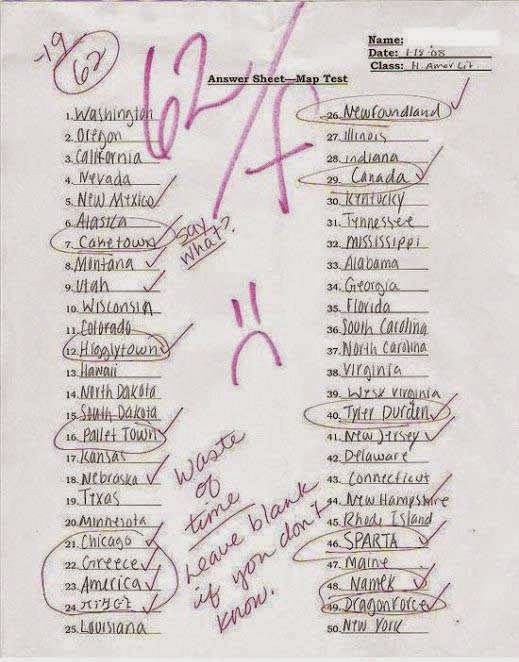 -19
62
62/F
Name:
Date: 1-18-08
Class: H. Amer Lit.
Answer Sheet—Map Test
1. Washington
2. Oregon
3. California
4. Nevada
5. New Mexico
6. Alaska
7. Caketown
Say what?
8. Montana
9. Utah
10. Wisconsin
11. Colorado
12. Higglytown
13. Hawaii
14. North Dakota
15. South Dakota
16. Pallet Town
17. Kansas
18. Nebraska
19. Texas
20. Minnesota
21. Chicago
22. Greece
23. America
24.
25. Louisiana
Waste
of
time
Leave blank
if you don't
know.
26. Newfoundland
27. Illinois
28. Indiana
29. Canada
30. Kentucky
31. Tennessee
32. Mississippi
33. Alabama
34. Georgia
35. Florida
36. South Carolina
37. North Carolina
38. Virginia
39. West Virginia
40. Tyler Durden
41. New Jersey
42. Delaware
43. Connecticut
44. New Hampshire
45. Rhode Island
46. SPARTA
47. Maine
48. Namek
49. Dragonforce
50. New York